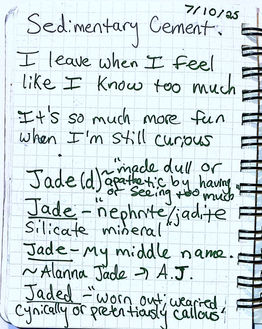 7/10/25
Sedimentary Cement.
I leave when I feel
like I know too much
It's so much more fun
when I'm still curious
Jade(d) ~ "made dull or
apathetic by having
or seeing too much
Jade - "nephrite/jadite
silicate mineral"
Jade - My middle name.
~ Alanna Jade → A.J.
Jaded - "worn out, wearied,
cynically or pretentiously callous"